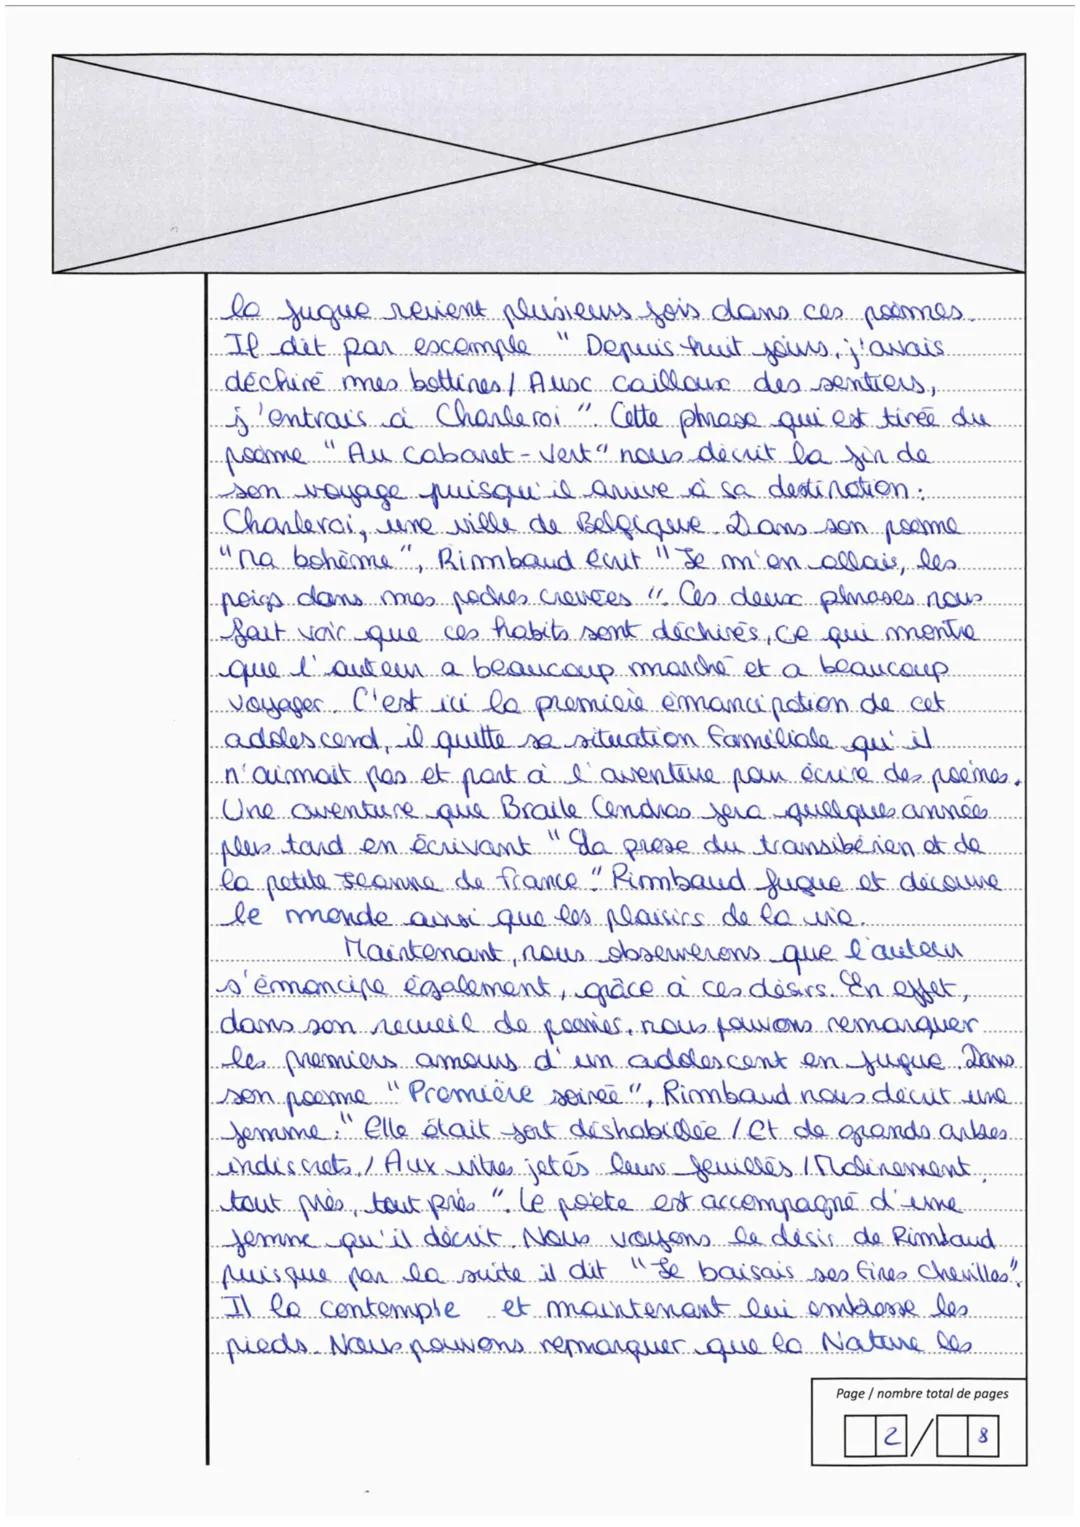 la fugue revient plusieurs fois dans ces poèmes.
Il dit par escemple " Depuis huit jours, j'avais
déchiré mes bottines / Ausc caillous des sentiers,
j'entrais à Charleroi ". Cette phrase qui est tirée du
poème " Au Cabaret-Vert" nous décrit la fin de
son voyage puisqu'il arrive à sa destination :
Charleroi, une ville de Belgique. Dans son poème
"Ma bohème", Rimbaud écrit " Je m'en allais, les
poigs dans mes poches crevées ". Ces deux phrases nous
fait voir que ces habits sont déchirés, ce qui montre
que l'auteur a beaucoup marché et a beaucoup
voyager. C'est ici la première émancipation de cet
adolescend, il quitte sa situation familiale qu'il
n'aimait pas et part à l'aventure pour écrire des poèmes.
Une aventure que Braile Cendras fera quelques année
plus tard en écrivant " La prose du transibérien et de
la petite Jeanne de france." Rimbaud fugue et découvre
le monde ainsi que les plaisirs de la vie.
Maintenant, nous observerons que l'auteur
s'émancipe également, grâce à ces désirs. En effet,
dans son recueil de poèmes, nous pouvons remarquer
les premiers amours d'un adolescent en fugue. Dans
son poème " Première soirée ", Rimbaud nous décrit une
femme : " Elle était fort déshabillée / Et de grands arbres
indiscrets / Aux vitres jetés leur feuillés / Malinement
tout près, tout près ". Le poète est accompagné d'une
femme qu'il décrit. Nous voyons le désir de Rimbaud
puisque par la suite il dit " Je baisais ses fines chevilles".
Il la contemple et maintenant lui embrasse les
pieds. Nous pouvons remarquer que la Nature les
Page / nombre total de pages
2 / 8